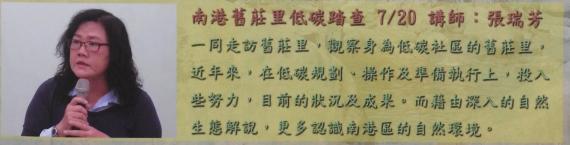 南港舊莊里低碳踏查 7/20 講師：張瑞芳
一同走訪舊莊里，觀察身為低碳社區的舊莊里，
近年來，在低碳規劃、操作及準備執行上，投入
些努力，目前的狀況及成果。而藉由深入的自然
生態解說，更多認識南港區的自然環境。